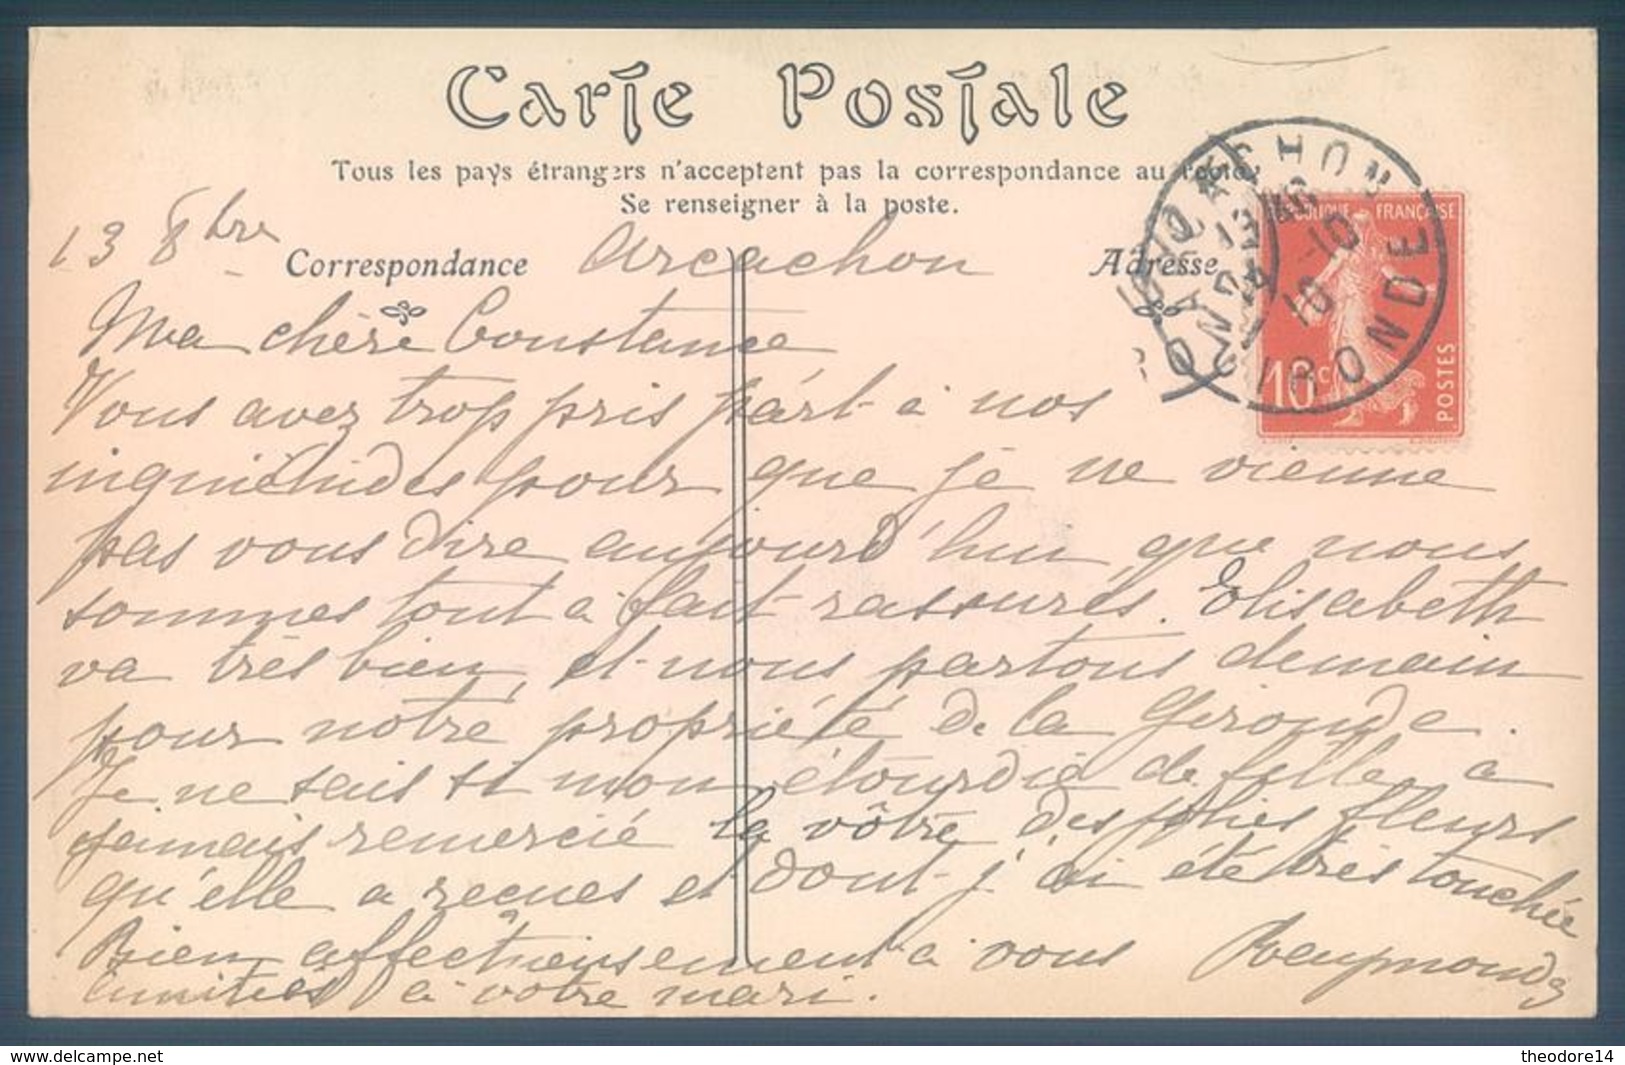 Carte Postale
Tous les pays étrangers n'acceptent pas la correspondance au recto.
Se renseigner à la poste.
Correspondance
Adresse
13 8bre
Arcachon
Ma chère Constance
Vous avez trop pris part à nos
inquiétudes pour que je ne vienne
pas vous dire aujourd'hui que nous
sommes tout à fait rassurés. Elisabeth
va très bien, et nous partons demain
pour notre propriété de la Gironde.
Je ne sais si mon étourdie de fille a
jamais remercié la vôtre des jolies fleurs
qu'elle a recues et dont j'ai été très touchée
Bien affectueusement à vous Raymonde
amitiés à votre mari.
ARCACHON
GIRONDE
13
10
10
RÉPUBLIQUE FRANÇAISE
10c
POSTES
www.delcampe.net
theodore14